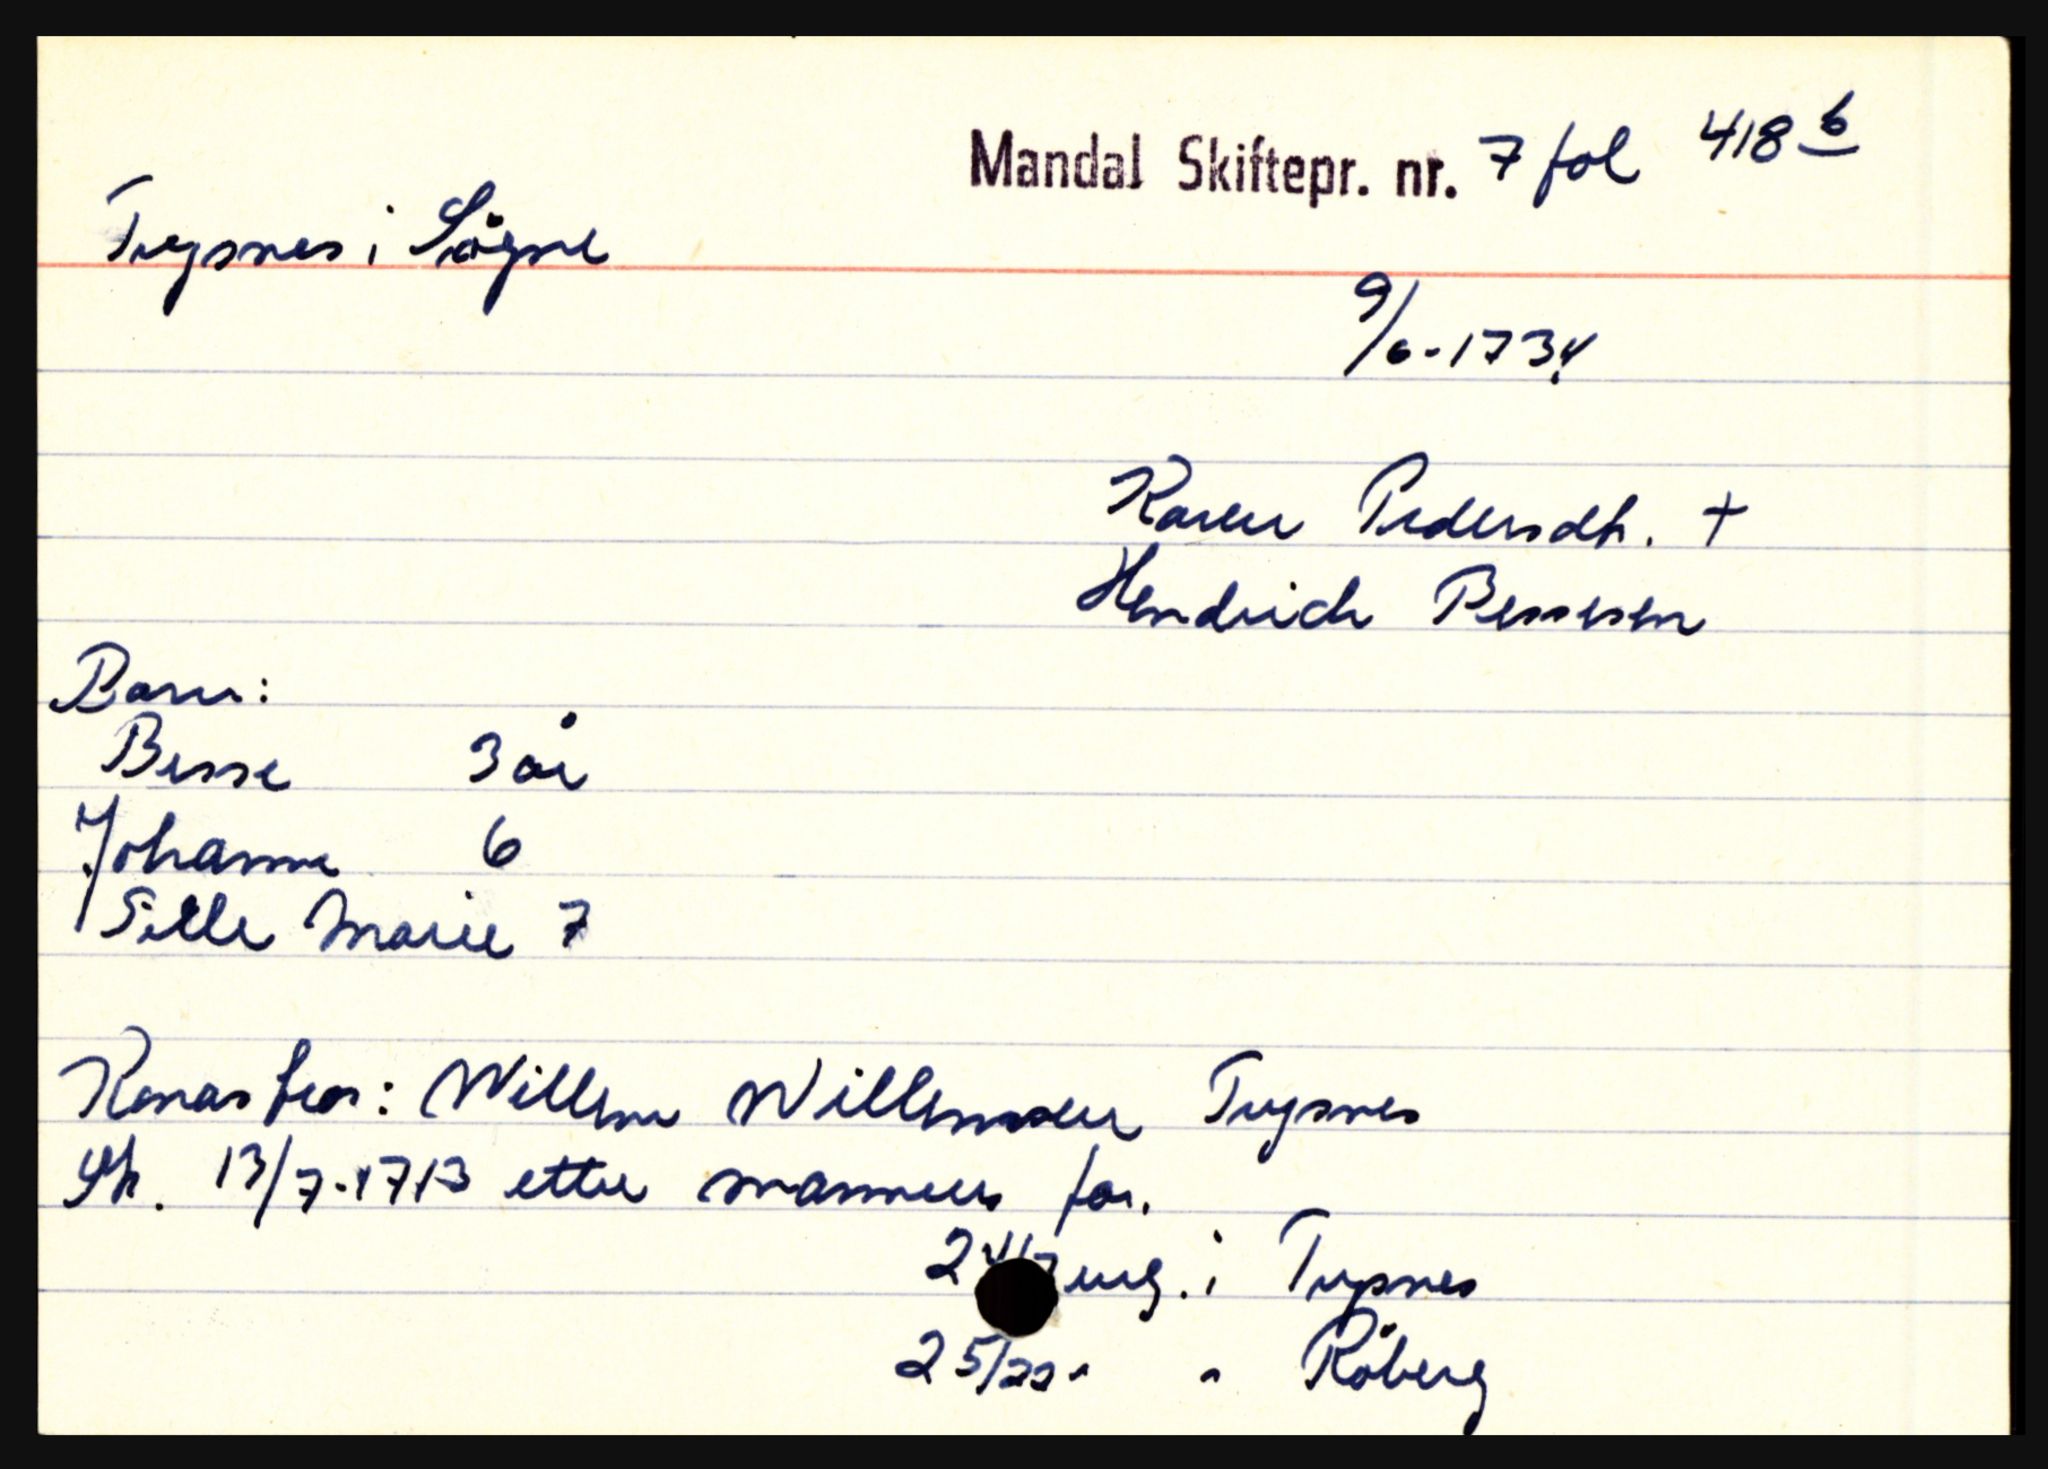 Mandal Skiftepr. nr. 7 fol 418 b
Trysnes i Søgne
9/6-1734
Karen Pedersdtr. +
Hendrich Bessesen
Barn:
Besse 3 år
Johanne 6
Sille Marie 7
Konas bror: Willem Willemsen Trysnes
Sk. 13/7-1713 etter mannens far.
2 eng. i Trysnes
25/22 " " Røberg